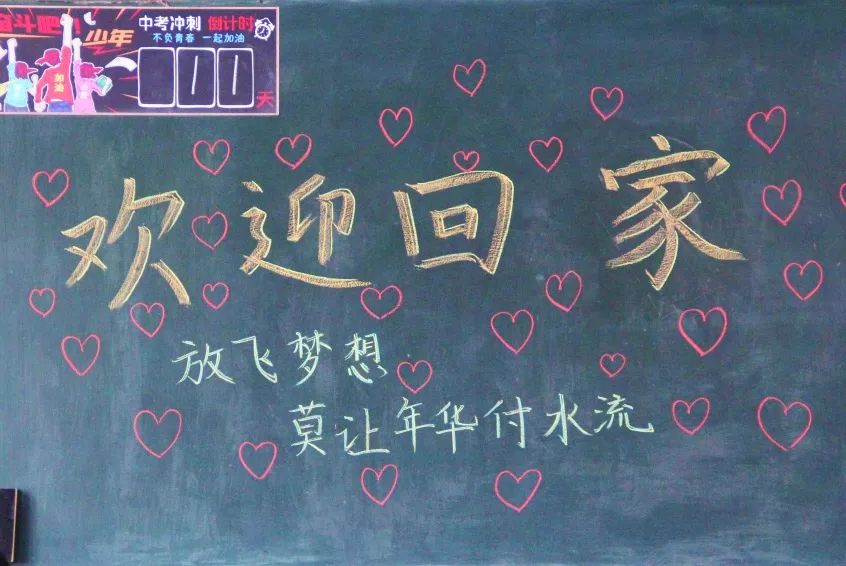 奋斗吧！少年
中考冲刺 倒计时
不负青春 一起加油
00天
加油
欢迎回家
放飞梦想
莫让年华付水流